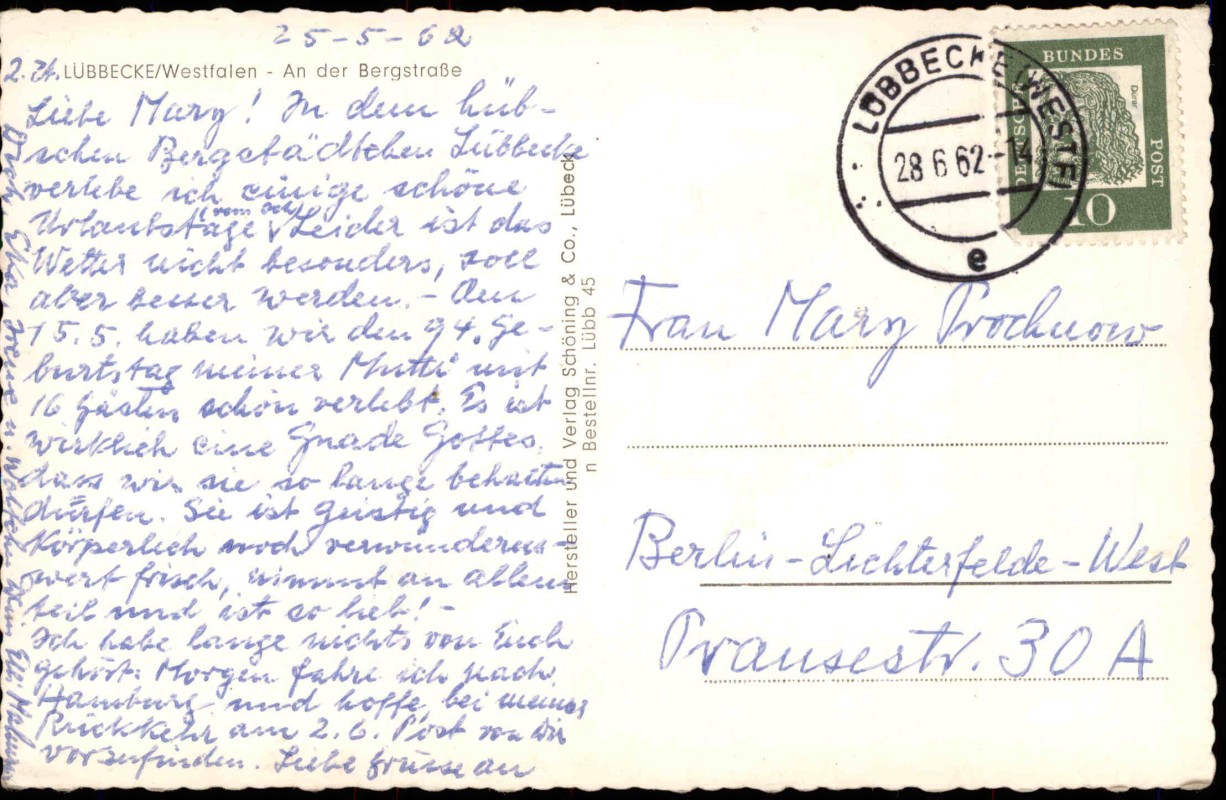 25-5-62
z. Zt. LÜBBECKE/Westfalen - An der Bergstraße
Liebe Mary! In dem hüb-
schen Bergstädtchen Lübbecke
verlebe ich einige schöne
Urlaubstage (vom Leider ist das
Wetter nicht besonders, soll
aber besser werden. - Am
15.5. haben wir den 94. Ge-
burtstag meiner Mutti mit
16 Gästen schön verlebt. Es ist
wirklich eine Gnade Gottes,
dass wir sie so lange behalten
dürfen. Sie ist geistig und
Körperlich noch verwunderns-
wert frisch, nimmt an allem
teil und ist so lieb! -
Ich habe lange nichts von Euch
gehört. Morgen fahre ich nach
Hamburg und hoffe, bei meiner
Rückkehr am 2.6. Post von Dir
vorzufinden. Liebe Grüsse an
Dich, u. Dein
Hersteller und Verlag Schöning & Co., Lübeck
n Bestellnr. Lübb 45
LÜBBECKE (WESTF)
28 6 62-14
e
DEUTSCHE
BUNDES
POST
Dürer
10
Frau Mary Prochnow
Berlin-Lichterfelde-West
Pransestr. 30 A